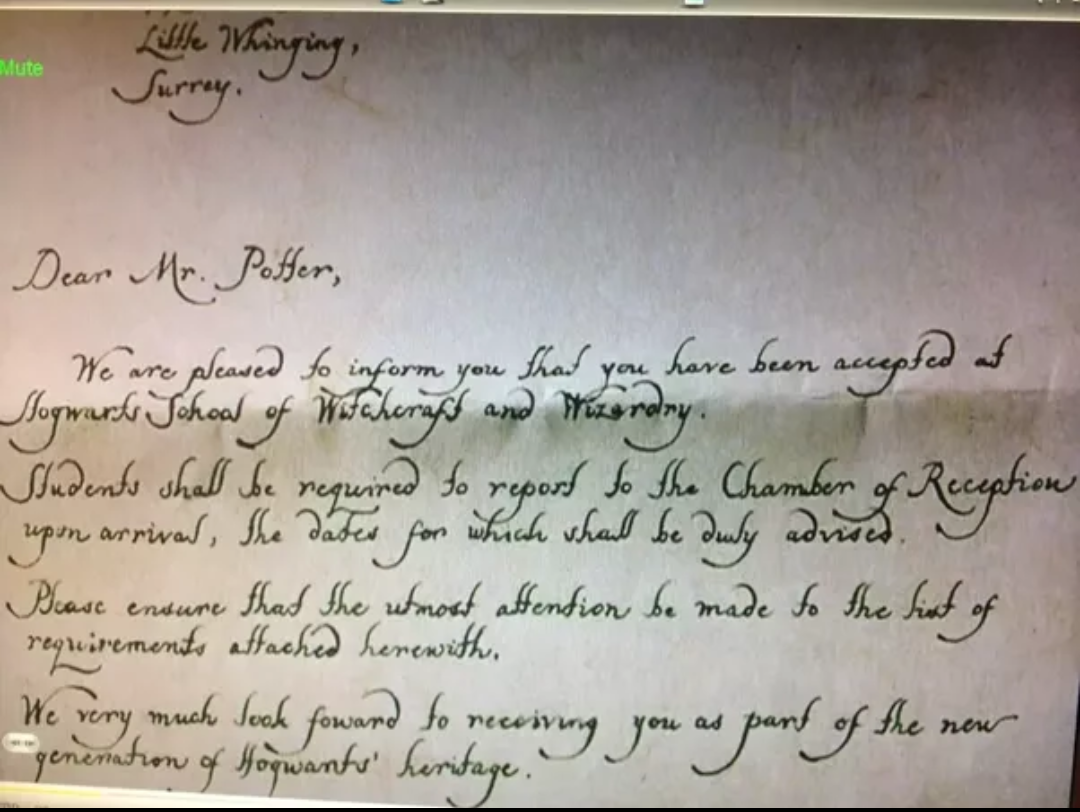 Little Whinging,
Mute
Surrey.
Dear Mr. Potter,
We are pleased to inform you that you have been accepted at
Hogwarts School of Witchcraft and Wizardry.
Students shall be required to report to the Chamber of Reception
upon arrival, the dates for which shall be duly advised.
Please ensure that the utmost attention be made to the list of
requirements attached herewith.
We very much look foward to receiving you as part of the new
generation of Hogwarts' heritage.